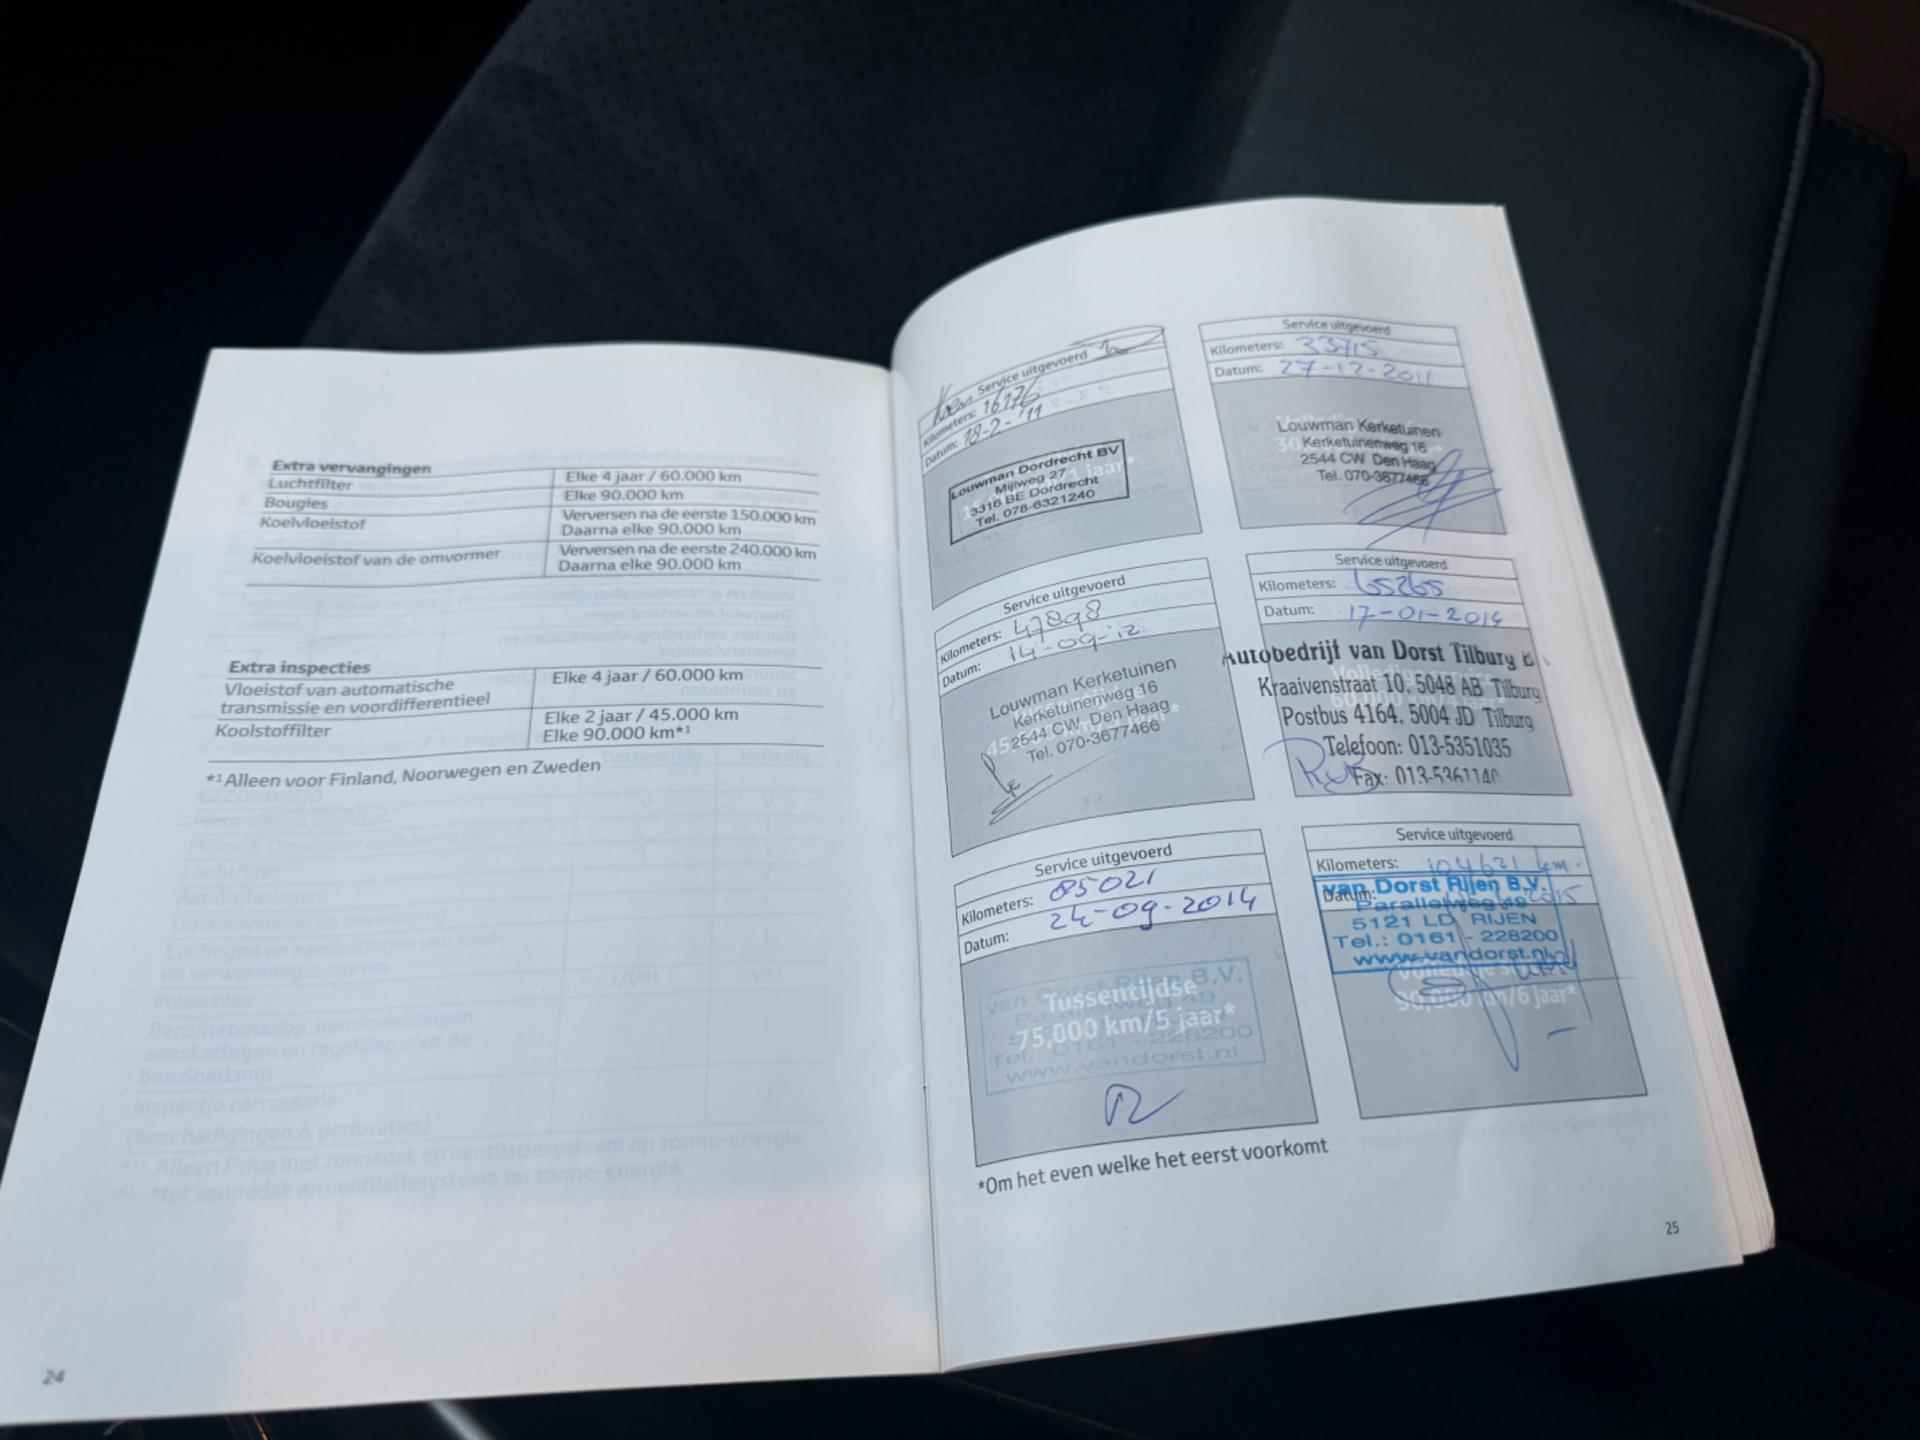 Extra vervangingen
Luchtfilter Elke 4 jaar / 60.000 km
Bougies Elke 90.000 km
Koelvloeistof Verversen na de eerste 150.000 km
Daarna elke 90.000 km
Koelvloeistof van de omvormer Verversen na de eerste 240.000 km
Daarna elke 90.000 km
Extra inspecties
Vloeistof van automatische
transmissie en voordifferentieel Elke 4 jaar / 60.000 km
Koolstoffilter Elke 2 jaar / 45.000 km
Elke 90.000 km*1
*1 Alleen voor Finland, Noorwegen en Zweden
24
Service uitgevoerd
Kilometers: 16176
Datum: 18-2-'11
Louwman Dordrecht BV
Mijlweg 27
3316 BE Dordrecht
Tel. 078-6321240
Service uitgevoerd
Kilometers: 33715
Datum: 27-12-2011
Louwman Kerketuinen
Kerketuinenweg 16
2544 CW Den Haag
Tel. 070-3677466
Service uitgevoerd
Kilometers: 47898
Datum: 14-09-'12
Louwman Kerketuinen
Kerketuinenweg 16
2544 CW Den Haag
Tel. 070-3677466
Service uitgevoerd
Kilometers: 65265
Datum: 17-01-2014
Autobedrijf van Dorst Tilburg
Kraaivenstraat 10, 5048 AB Tilburg
Postbus 4164, 5004 JD Tilburg
Telefoon: 013-5351035
Fax: 013-5361140
Service uitgevoerd
Kilometers: 85021
Datum: 24-09-2014
van Dorst Rijen B.V.
Tussentijdse
75,000 km/5 jaar*
Tel.: 0161 - 228200
www.vandorst.nl
Service uitgevoerd
Kilometers: 104621 km.
Datum: 2015
van Dorst Rijen B.V.
Parallelweg 49
5121 LD RIJEN
Tel.: 0161 - 228200
www.vandorst.nl
90,000 km/6 jaar*
*Om het even welke het eerst voorkomt
25